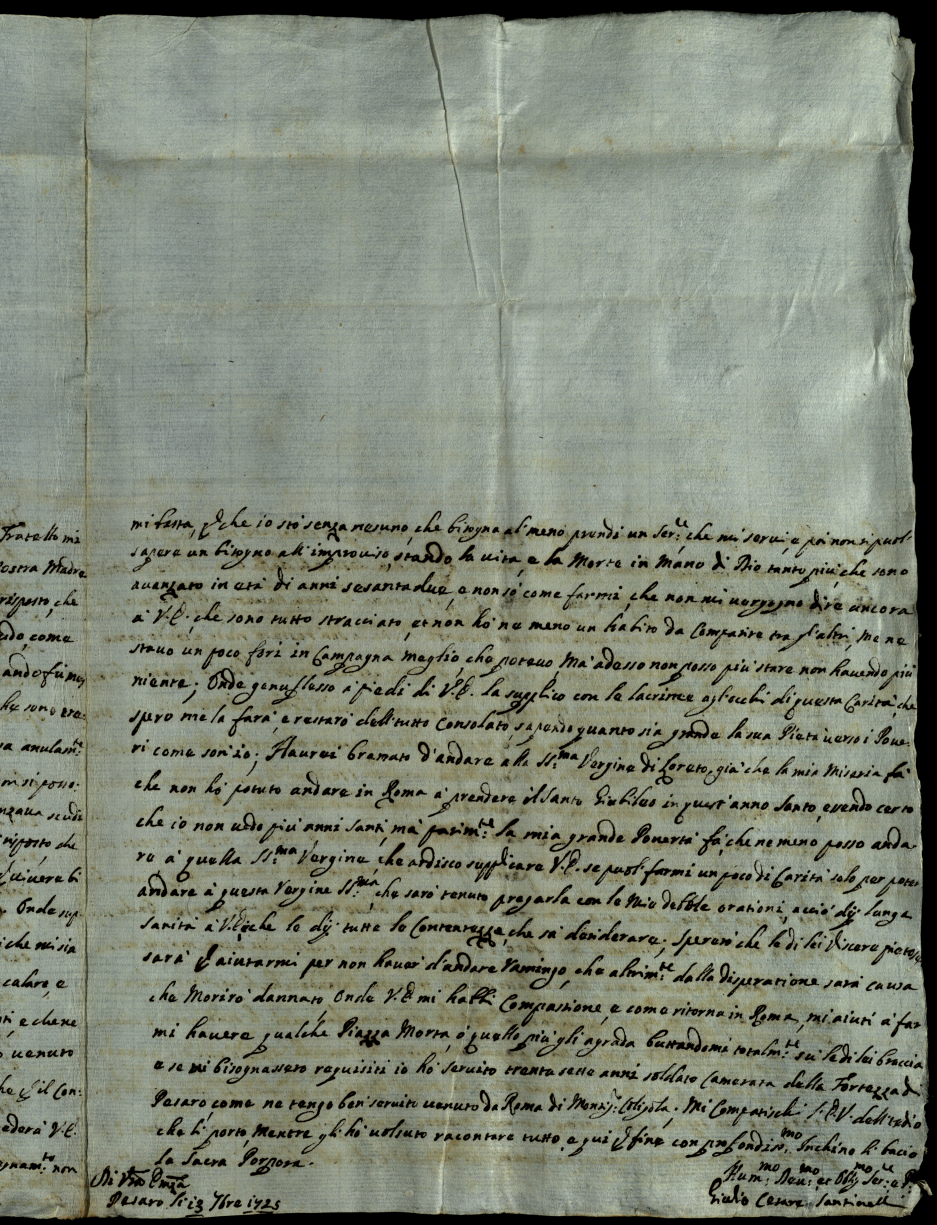 mi basta, che io stò senza nesuno, che bisogna al meno prendi un Ser.e che mi servi, e poi non si puol
sapere un bisogno all'improviso, stando la vita, e la Morte in Mano di Dio tanto più, che sono
avanzato in età di anni sesantadue, e non sò come farmi, che non mi vergogno dire ancora
à V.E. che sono tutto stracciato, et non hò ne meno un habito da Comparire tra gl'altri, Me ne
stavo un poco fori in Campagna meglio che potevo Mà adesso non posso più stare non havendo più
niente; Onde genuflesso à piedi di V.E. la supplico con le lacrime agl'occhi di questa Carità, che
spero me la farà, e restarò dell tutto Consolato, sapendo quanto sia grande la sua Pietà verso i Pove-
ri come son'io; Haurei bramato d'andare alla SS.ma Vergine di Loreto, già che la mia Miseria fà
che non hò potuto andare in Roma à prendere il Santo Giubileo in quest'anno Santo, esendo certo
che io non vedo più anni Santi, mà parim.te la mia grande Povertà fà, che ne meno posso anda-
re à quella SS.ma Vergine, che ardisco supplicare V.E. se puol farmi un poco di Carità solo per poter
andare à questa Vergine SS.ma, che sarò tenuto pregarla con le Mie debbole orationi, acciò dij lunga
sanità à V.E. che le dij tutte le Contentezze, che sà desiderare; sperarò che le di lei Viscere pietose
sarà aiutarmi per non haver d'andare ramingo, che altrim.te dalla disperatione sarà causa
che Morirò dannato Onde V.E. mi habbi Compassione, e come ritorna in Roma, mi aiuti à far
mi havere qualche Piazza Morta, ò quello più gli agrada buttandomi totalm.te sù le di lei braccia
e se mi bisognassero requisiti io hò servito trenta sette anni soldato Camerata della Fortezza di
Pesaro come ne tengo ben serviti venuto da Roma di Mons.r Colligola. Mi Compatischi dell'tedio
che li porto, mentre gli hò volsuto racontare tutto, e qui fine con profondis.mo Inchino li bacio
la Sacra Porpora.
Di V.ra Em.za
Pesaro li 13 7bre 1725
Hum.mo Dev.mo et Obl.mo Ser.e
Giulio Cesare Santinelli
Fratello mi
nostra Madre
risposto, che
come
che sono
risposto, che
Onde sup-
che mi sia
calare, e
e che ne
venuto
il Con-
V.E.
non